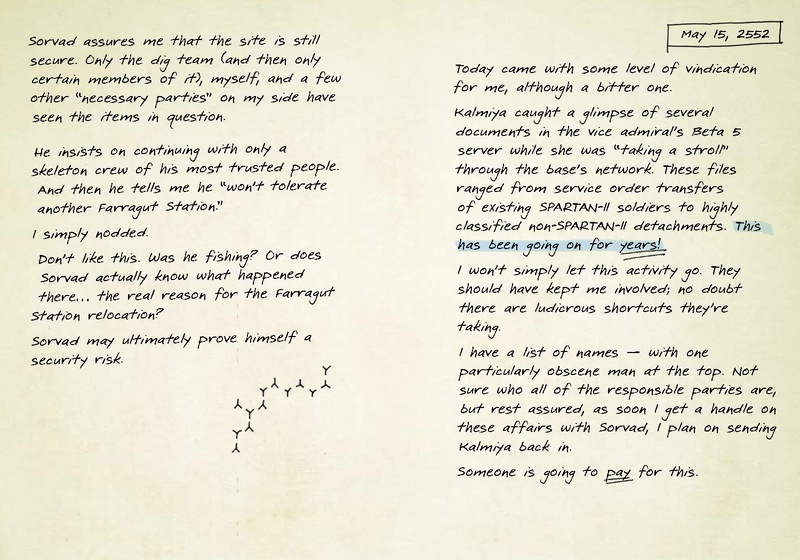 Sorvad assures me that the site is still
secure. Only the dig team (and then only
certain members of it), myself, and a few
other "necessary parties" on my side have
seen the items in question.
He insists on continuing with only a
skeleton crew of his most trusted people.
And then he tells me he "won't tolerate
another Farragut Station."
I simply nodded.
Don't like this. Was he fishing? Or does
Sorvad actually know what happened
there... the real reason for the Farragut
Station relocation?
Sorvad may ultimately prove himself a
security risk.
May 15, 2552
Today came with some level of vindication
for me, although a bitter one.
Kalmiya caught a glimpse of several
documents in the vice admiral's Beta 5
server while she was "taking a stroll"
through the base's network. These files
ranged from service order transfers
of existing SPARTAN-II soldiers to highly
classified non-SPARTAN-II detachments. This
has been going on for years!
I won't simply let this activity go. They
should have kept me involved; no doubt
there are ludicrous shortcuts they're
taking.
I have a list of names — with one
particularly obscene man at the top. Not
sure who all of the responsible parties are,
but rest assured, as soon as I get a handle on
these affairs with Sorvad, I plan on sending
Kalmiya back in.
Someone is going to pay for this.